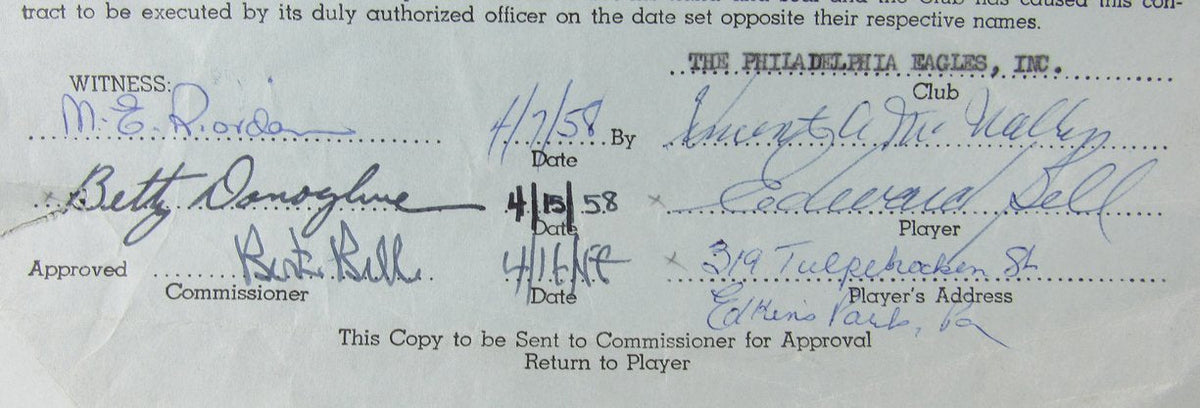 tract to be executed by its duly authorized officer on the date set opposite their respective names.
THE PHILADELPHIA EAGLES, INC.
WITNESS:
Club
M. E. Riordan 4/7/58 By Vincent A McNally
Date
Betty Donoghue 4/15/58 x Edward Bell
Date Player
Approved Bert Bell 4/16 x 319 Tulpehocken St
Commissioner Date Player's Address
Elkins Park, Pa
This Copy to be Sent to Commissioner for Approval
Return to Player